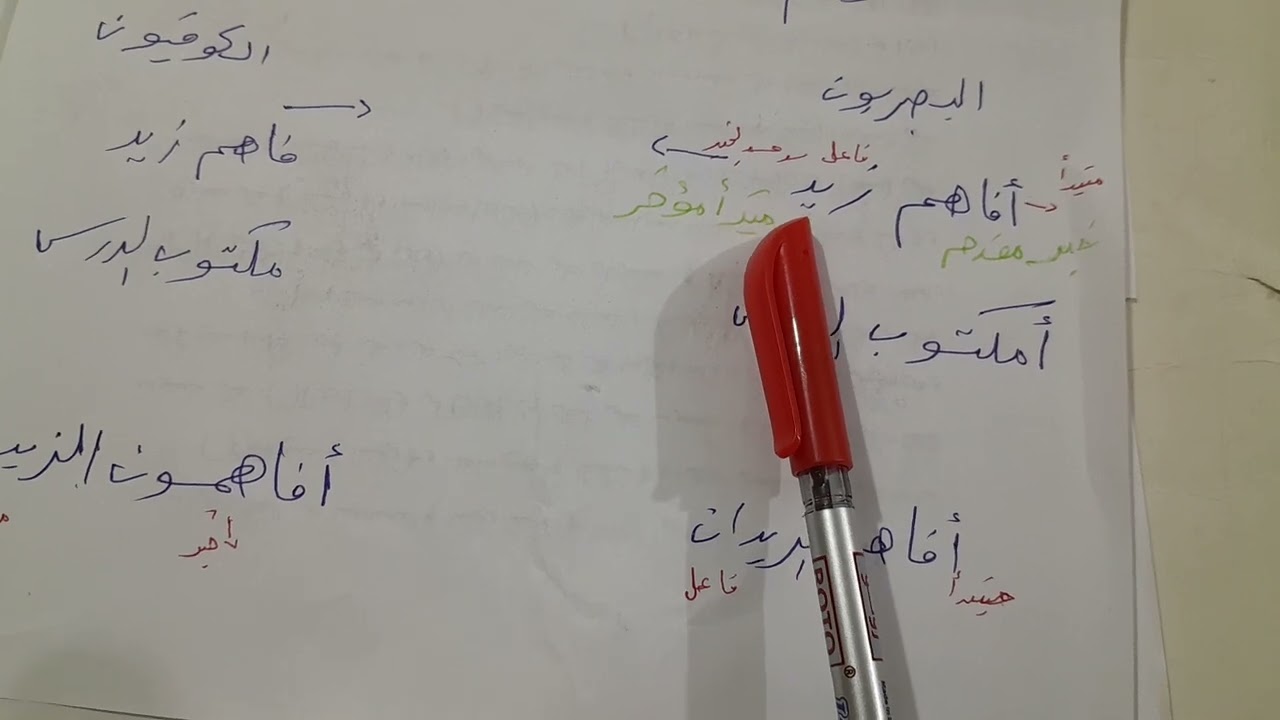 البصريون
فاعل سد مسد الخبر
مبتدأ
أفاهم زيد
مبتدأ مؤخر
خبر مقدم
أمكتوب
أفاهم الزيدان
مبتدأ
فاعل
الكوفيون
فاهم زيد
مكتوب الدرس
أفاهمون الزيد
خبر
ROTO